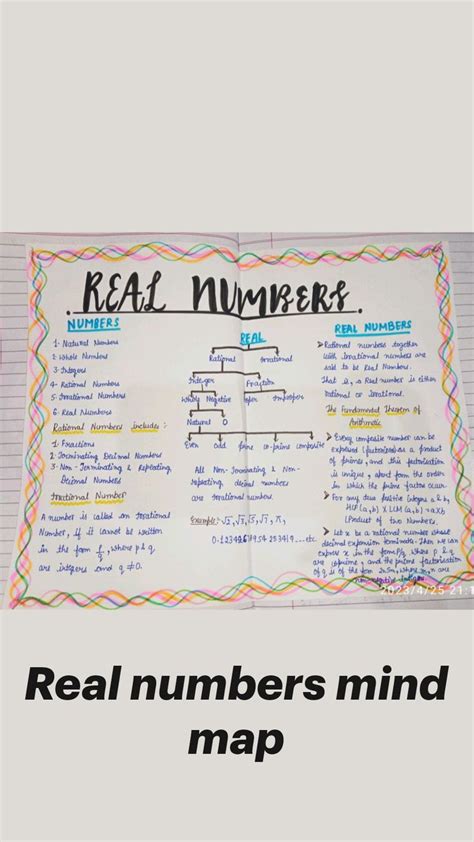 REAL NUMBERS.
NUMBERS
1- Natural Numbers
2- Whole Numbers
3- Integers
4- Rational Numbers
5- Irrational Numbers
6- Real Numbers
Rational Numbers includes :
1- Fractions
2- Terminating Decimal Numbers
3- Non-Terminating & Repeating,
Decimal Numbers
Irrational Number
A number is called an Irrational
Number, if it cannot be written
in the form p/q, where p & q,
are integers and q ≠ 0.
REAL
Rational Irrational
Integer Fraction
Whole Negative Improper
Natural 0
Even odd prime co-prime composite
All Non-Terminating & Non-
repeating, decimal numbers
are irrational numbers.
Example:
REAL NUMBERS
Rational numbers together
with irrational numbers are
said to be Real Numbers.
That is, a Real number is either
rational or irrational.
The Fundamental Theorem of
Arithmetic
Every composite number can be
expressed (factorised) as a product
of primes, and this factorisation
is unique, apart from the order
in which the prime factor occur.
For any two positive Integers a & b,
HCF (a,b) X LCM (a,b) = aXb
(Product of two Numbers.
Let x be a rational number whose
decimal expansion terminate. Then we can
express x in the form p/q, where p & q
are coprime, and the prime factorisation
of q is of the form 2n5m, where m,n are
2023/4/25 21:1
Real numbers mind
map